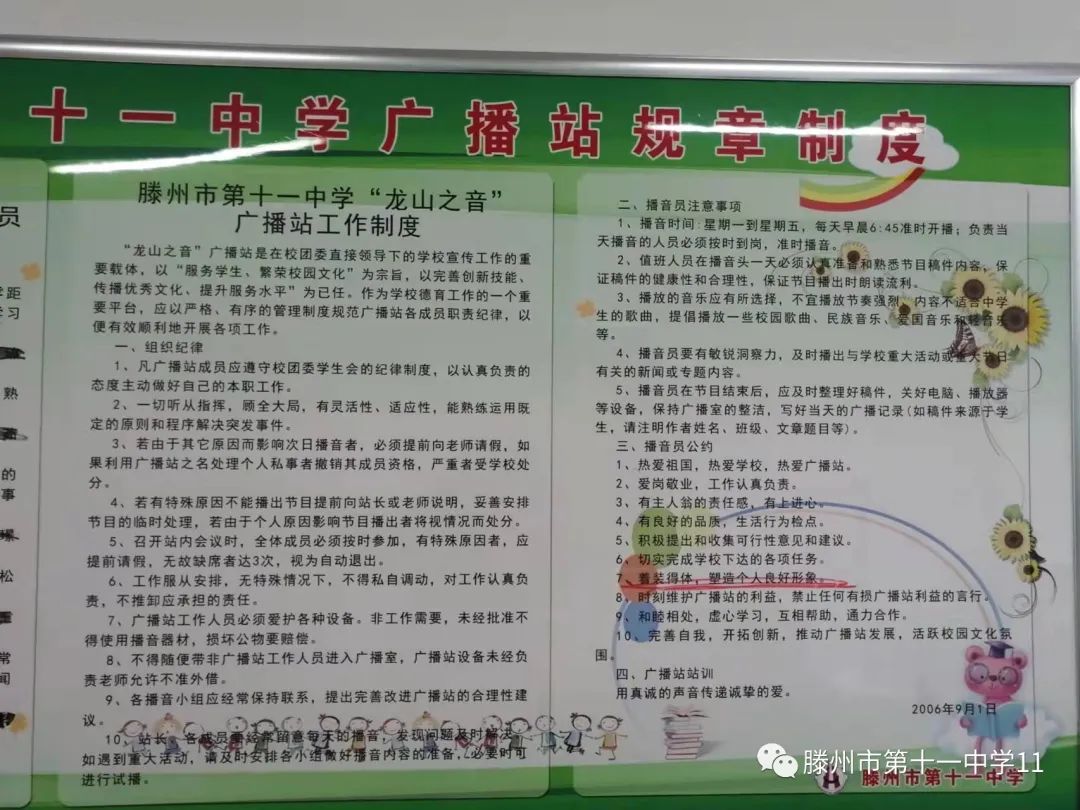 十一中学广播站规章制度
员
距
习
熟
的
事
松
常
闻
滕州市第十一中学“龙山之音”
广播站工作制度
“龙山之音”广播站是在校团委直接领导下的学校宣传工作的重
要载体，以“服务学生、繁荣校园文化”为宗旨，以完善创新技能、
传播优秀文化、提升服务水平”为已任。作为学校德育工作的一个重
要平台，应以严格、有序的管理制度规范广播站各成员职责纪律，以
便有效顺利地开展各项工作。
一、组织纪律
1、凡广播站成员应遵守校团委学生会的纪律制度，以认真负责的
态度主动做好自己的本职工作。
2、一切听从指挥，顾全大局，有灵活性、适应性，能熟练运用既
定的原则和程序解决突发事件。
3、若由于其它原因而影响次日播音者，必须提前向老师请假，如
果利用广播站之名处理个人私事者撤销其成员资格，严重者受学校处
分。
4、若有特殊原因不能播出节目提前向站长或老师说明，妥善安排
节目的临时处理，若由于个人原因影响节目播出者将视情况而处分。
5、召开站内会议时，全体成员必须按时参加，有特殊原因者，应
提前请假，无故缺席者达3次，视为自动退出。
6、工作服从安排，无特殊情况下，不得私自调动，对工作认真负
责，不推卸应承担的责任。
7、广播站工作人员必须爱护各种设备。非工作需要，未经批准不
得使用播音器材，损坏公物要赔偿。
8、不得随便带非广播站工作人员进入广播室，广播站设备未经负
责老师允许不准外借。
9、各播音小组应经常保持联系，提出完善改进广播站的合理性建
议。
10、站长、各成员要经常留意每天的播音，发现问题及时解决，
如遇到重大活动，请及时安排各小组做好播音内容的准备，必要时可
进行试播。
二、播音员注意事项
1、播音时间:星期一到星期五，每天早晨6:45准时开播；负责当
天播音的人员必须按时到岗，准时播音。
2、值班人员在播音头一天必须认真准备和熟悉节目稿件内容，保
证稿件的健康性和合理性，保证节目播出时朗读流利。
3、播放的音乐应有所选择，不宜播放节奏强烈、内容不适合中学
生的歌曲，提倡播放一些校园歌曲、民族音乐、爱国音乐和轻音乐
等。
4、播音员要有敏锐洞察力，及时播出与学校重大活动或重大节日
有关的新闻或专题内容。
5、播音员在节目结束后，应及时整理好稿件，关好电脑、播放器
等设备，保持广播室的整洁，写好当天的广播记录(如稿件来源于学
生，请注明作者姓名、班级、文章题目等)。
三、播音员公约
1、热爱祖国，热爱学校，热爱广播站。
2、爱岗敬业，工作认真负责。
3、有主人翁的责任感，有上进心。
4、有良好的品质，生活行为检点。
5、积极提出和收集可行性意见和建议。
6、切实完成学校下达的各项任务。
7、着装得体，塑造个人良好形象。
8、时刻维护广播站的利益，禁止任何有损广播站利益的言行。
9、和睦相处，虚心学习，互相帮助，通力合作。
10、完善自我，开拓创新，推动广播站发展，活跃校园文化氛
围。
四、广播站站训
用真诚的声音传递诚挚的爱。
2006年9月1日
滕州市第十一中学
滕州市第十一中学11